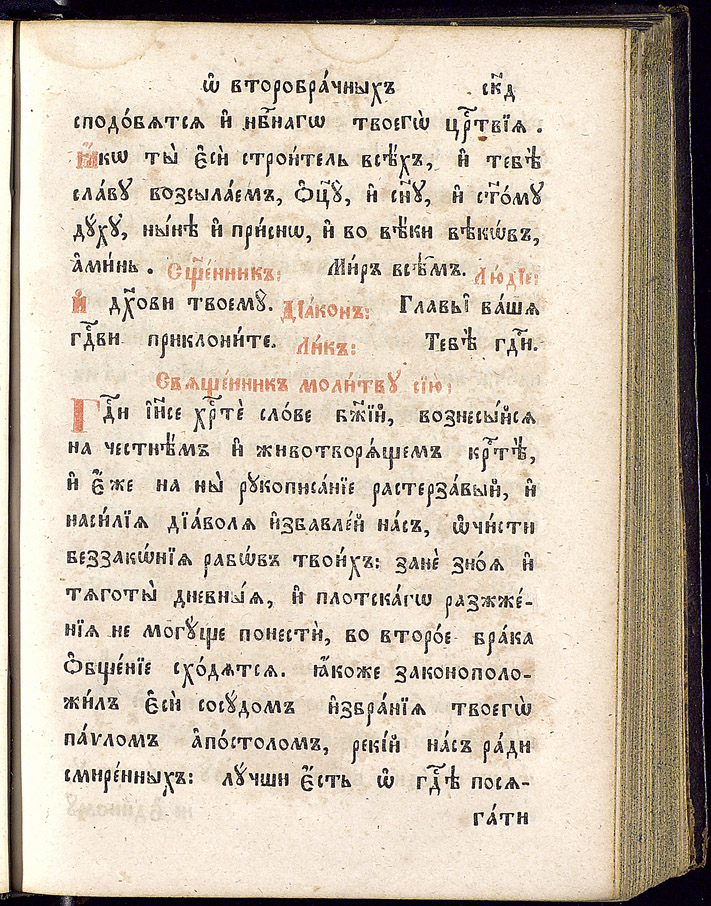 Ѽ второбра́чныхъ   ск҃д
сподо́бѧтсѧ и҆ нбⷭ҇нагѡ твоегѡ̀ црⷭ҇твїѧ .
Ꙗ҆́кѡ ты̀ є҆сѝ строи́тель всѣ́хъ, и҆ тебѣ̀
сла́вꙋ возсыла́емъ, ѻ҆ц҃ꙋ̀, и҆ сн҃ꙋ, и҆ ст҃о́мꙋ
дꙋ́хꙋ, ны́нѣ и҆ при́снѡ, и҆ во вѣ́ки вѣкѡ́въ,
а҆ми́нь . Сщ҃е́нникъ: Ми́ръ всѣ̑мъ. Лю́дїе:
И҆ дх҃ови твоемꙋ̀. Дїа́конъ: Главы̀ ва́шѧ
гдⷭ҇ви приклони́те. Ли́къ: Тебѣ̀ гдⷭ҇и.
Свѧще́нникъ моли́твꙋ сїю̀:
Гдⷭ҇и і҆и҃се хрⷭ҇тѐ сло́ве бж҃їй, вознесы́йсѧ
на честнѣ́мъ и҆ животворѧ́щемъ крⷭ҇тѣ̀,
и҆ є҆́же на ны̀ рꙋкописа́нїе растерза́вый, и҆
наси́лїѧ дїа́волѧ и҆збавле́й на́съ, ѡ҆чи́сти
беззакѡ́нїѧ рабѡ́въ твои́хъ: занѐ зно́ѧ и҆
тѧготы̀ дневны́ѧ, и҆ плотска́гѡ разжже́-
нїѧ не могꙋ́ще понестѝ, во второ́е бра́ка
ѻ҆бще́нїе схо́дѧтсѧ. ꙗ҆́коже законополо-
жи́лъ є҆сѝ сосꙋ́домъ и҆збра́нїѧ твоегѡ̀
па́ѵломъ а҆по́столомъ, реки́й на́съ ра́ди
смире́нныхъ: лꙋ́чши є҆́сть ѡ҆ гдⷭ҇ѣ посѧ-
га́ти